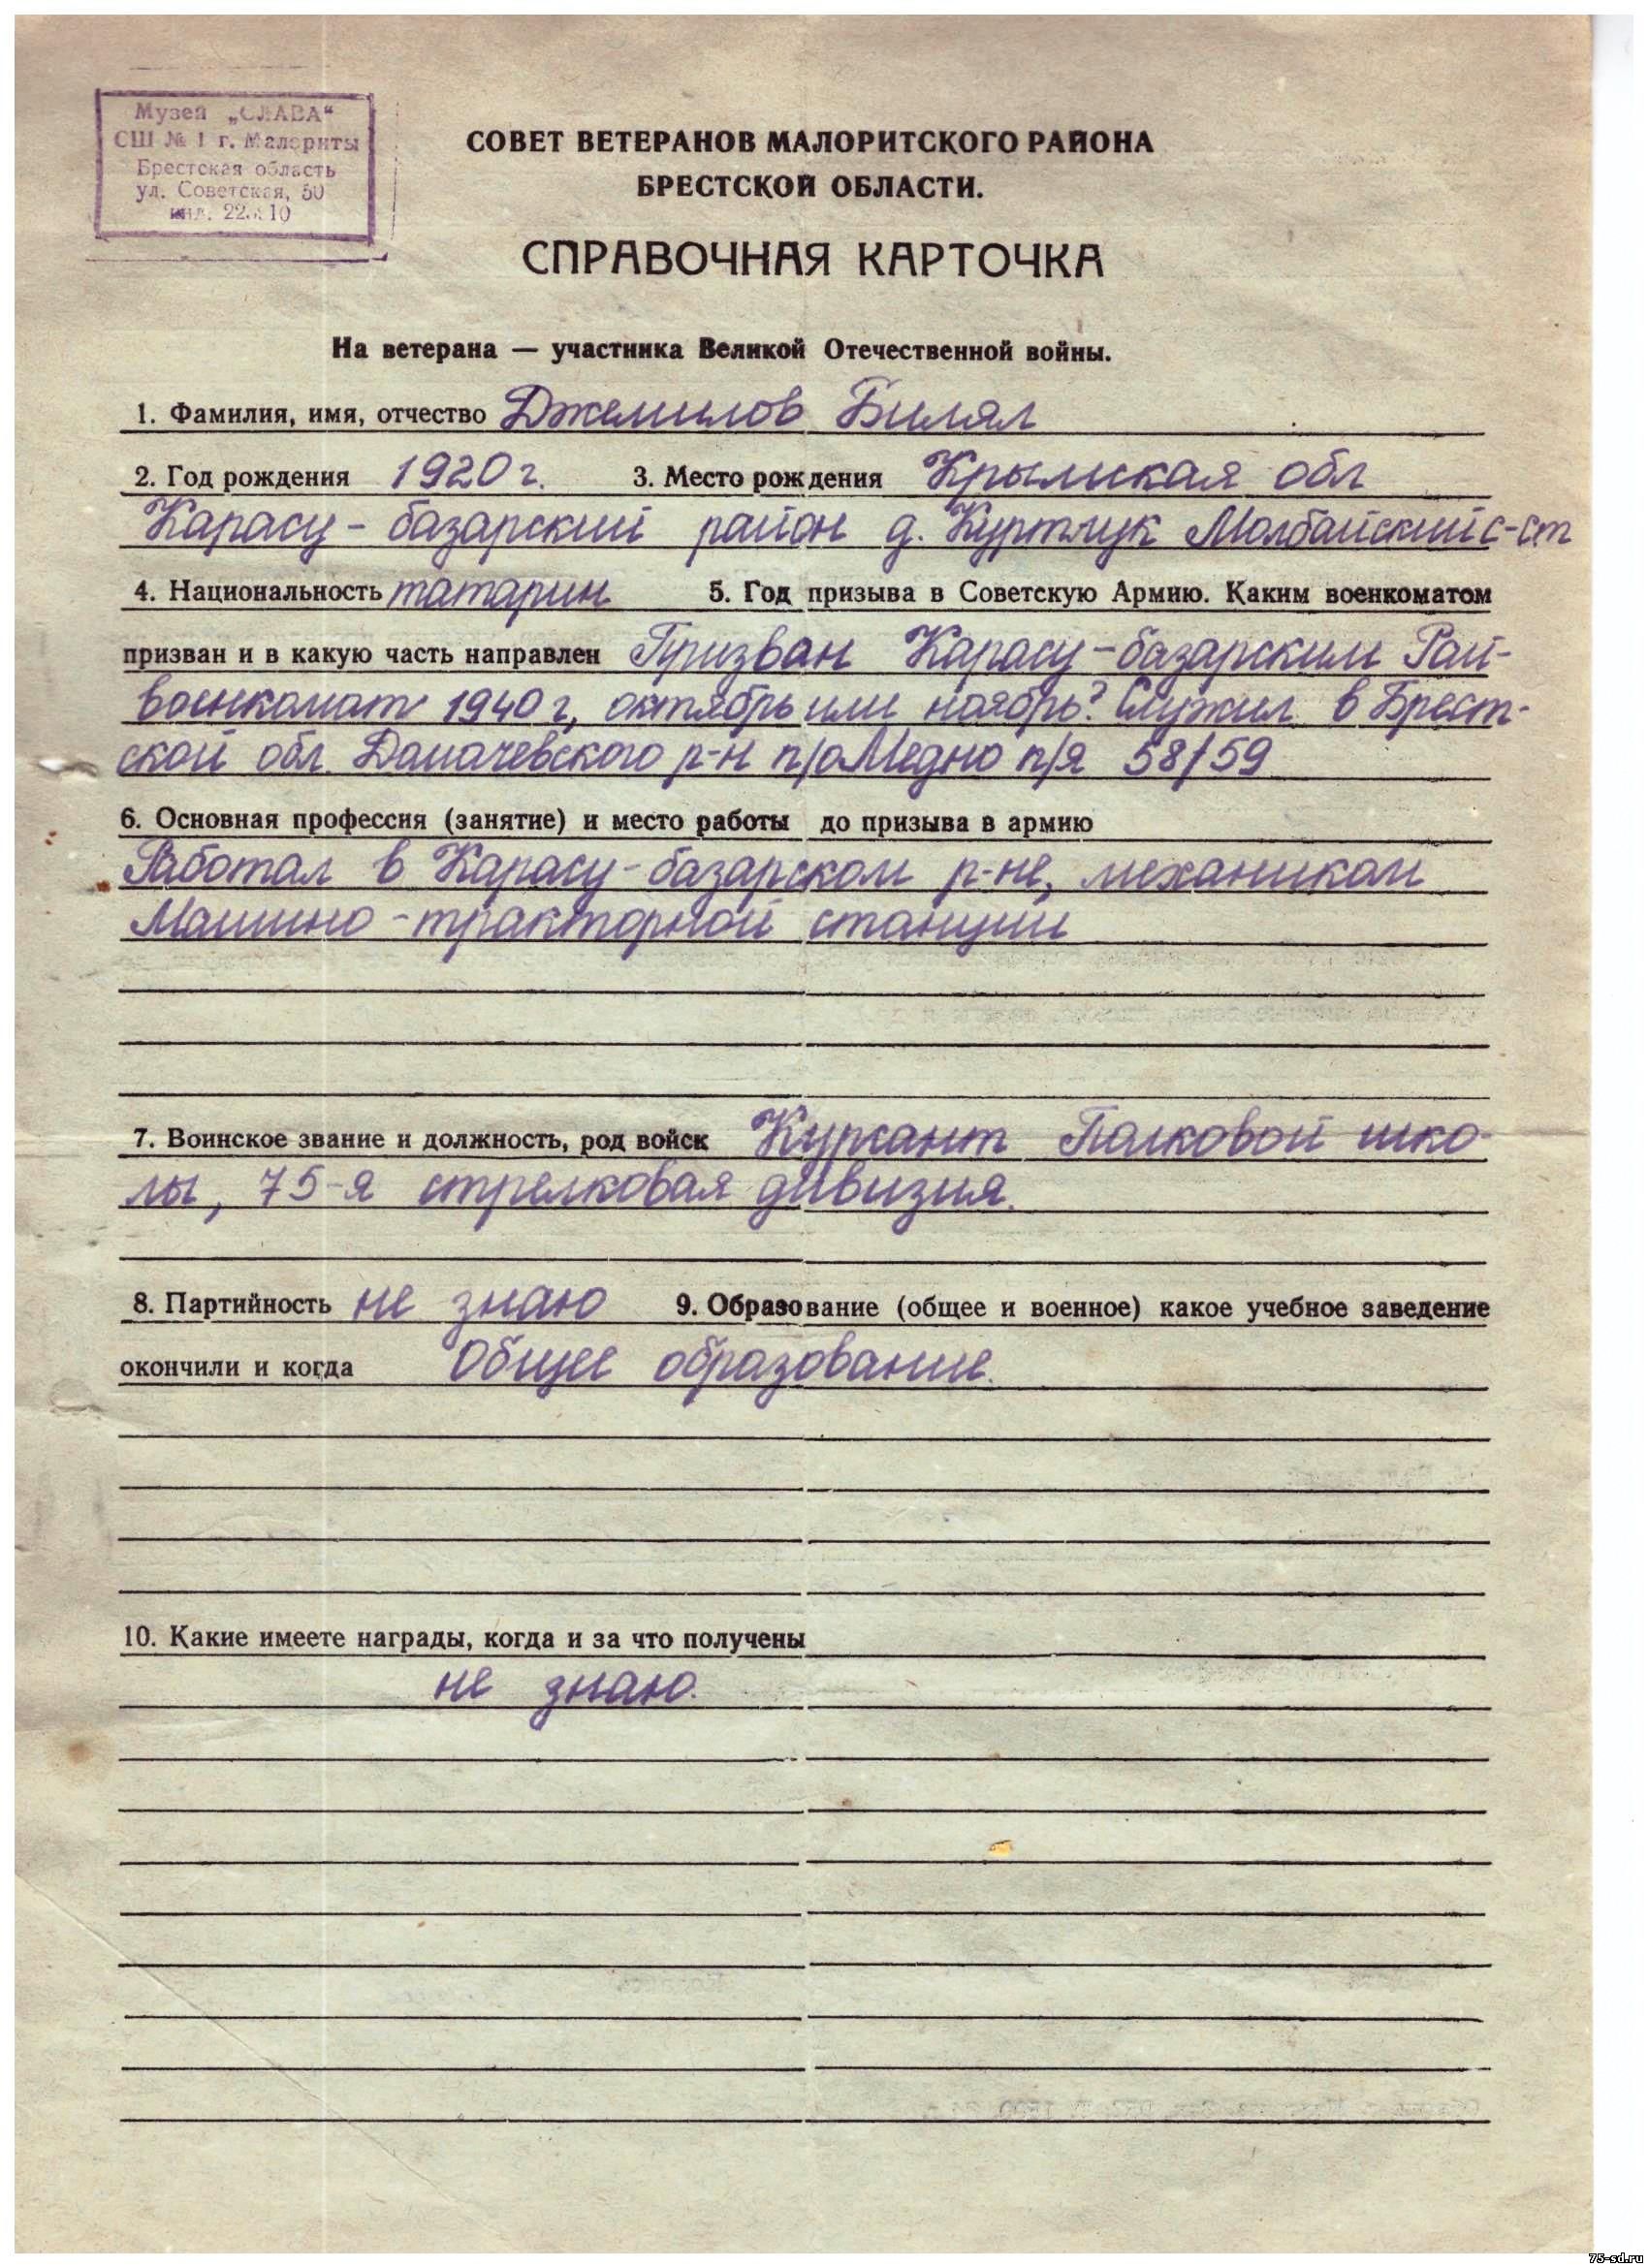 Музей „СЛАВА“
СШ № 1 г. Малориты
Брестская область
ул. Советская, 50
инд.
СОВЕТ ВЕТЕРАНОВ МАЛОРИТСКОГО РАЙОНА
БРЕСТСКОЙ ОБЛАСТИ.
СПРАВОЧНАЯ КАРТОЧКА
На ветерана — участника Великой Отечественной войны.
1. Фамилия, имя, отчество Джемилов Билял
2. Год рождения 1920 г. 3. Место рождения Крымская обл
Карасу-базарский район д. Куртлук Молбайский с-ст
4. Национальность татарин 5. Год призыва в Советскую Армию. Каким военкоматом
призван и в какую часть направлен Призван Карасу-базарским Рай-
военкомат 1940 г, октябрь или ноябрь? Служил в Брест-
ской обл. Домачевского р-н п/о Медно п/я 58/59
6. Основная профессия (занятие) и место работы до призыва в армию
Работал в Карасу-базарском р-не, механиком
Машино-тракторной станции
7. Воинское звание и должность, род войск Курсант Полковой шко-
лы, 75-я стрелковая дивизия.
8. Партийность не знаю 9. Образование (общее и военное) какое учебное заведение
окончили и когда Общее образование.
10. Какие имеете награды, когда и за что получены
не знаю.
75-sd.ru